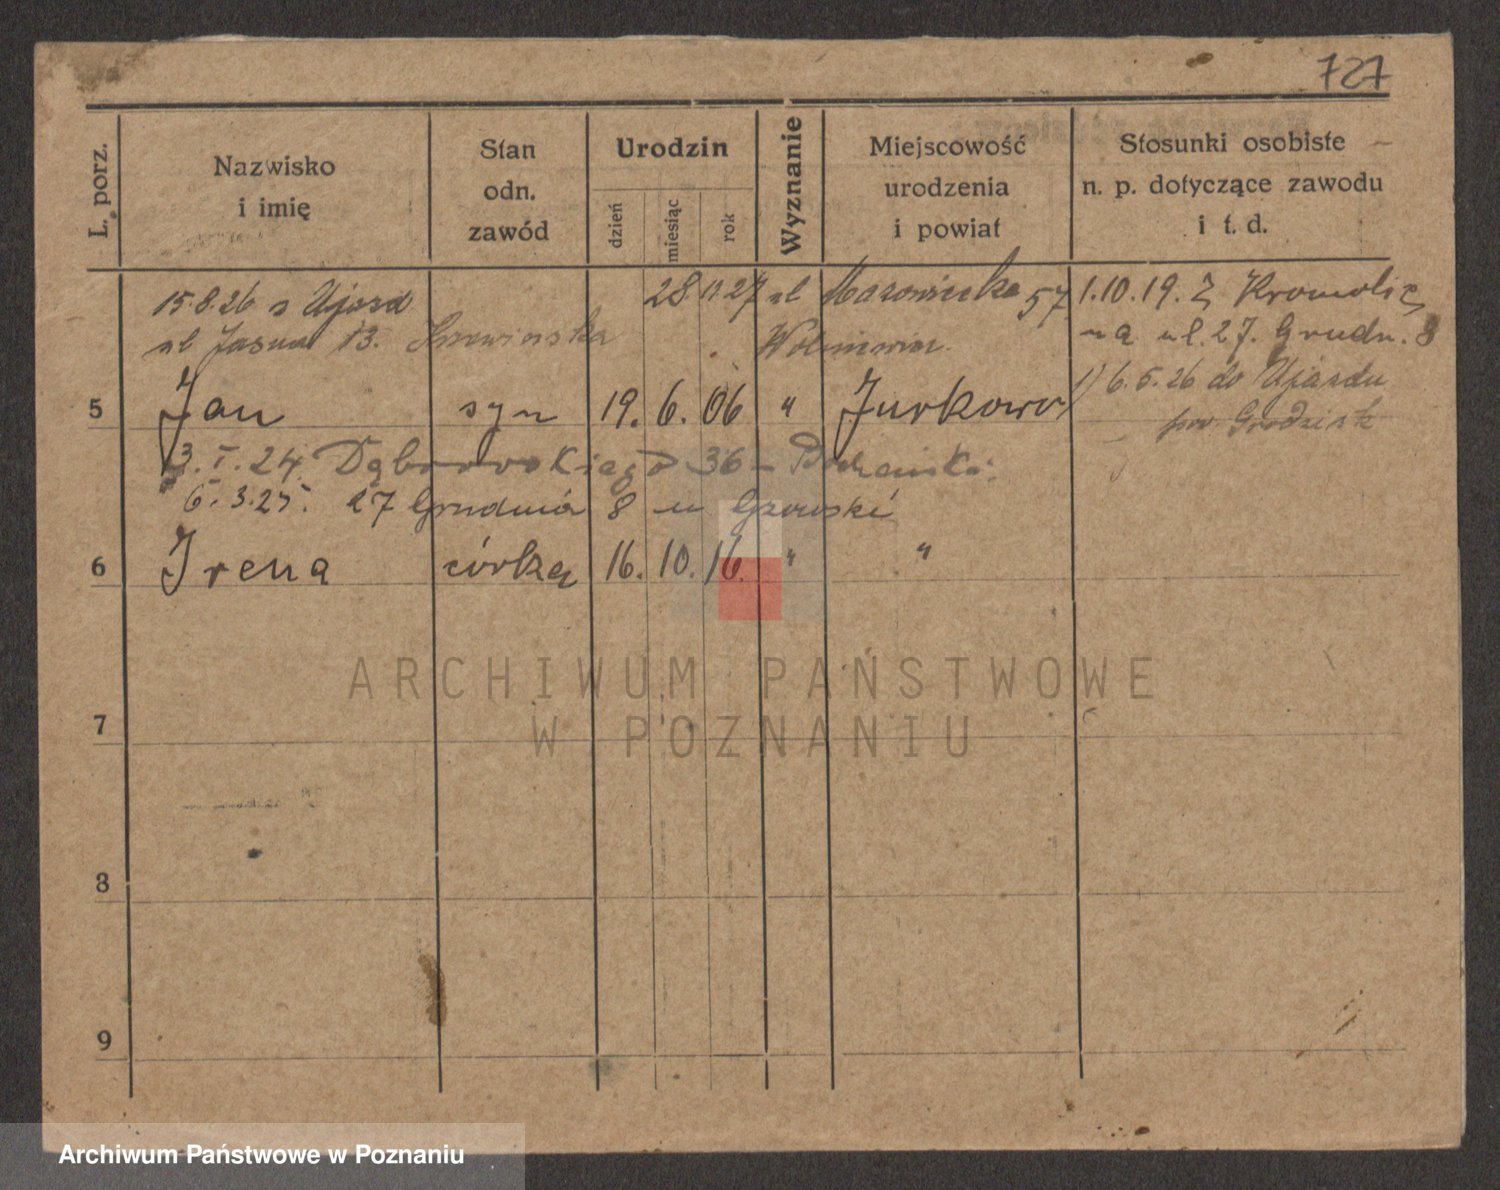 727
L. porz.
Nazwisko
i imię
Stan
odn.
zawód
Urodzin
dzień
miesiąc
rok
Wyznanie
Miejscowość
urodzenia
i powiat
Stosunki osobiste
n. p. dotyczące zawodu
i t. d.
15.8.26 z Ujazd 28 11.27 ul Mazowiecka 57 1.10.19. Z Kromolic
ul Jasna 13. na ul. 27. Grudn. 8
1) 6.5.26 do Ujazdu
5 Jan syn 19. 6. 06 " Jurkowo pow Grodzisk
3. I. 24. Dąbrowskiego 36
5.3.25. 27 Grudnia 8 u Gzowski
6 Irena córka 16. 10. 16. " "
7
8
9
ARCHIWUM PAŃSTWOWE
W POZNANIU
Archiwum Państwowe w Poznaniu